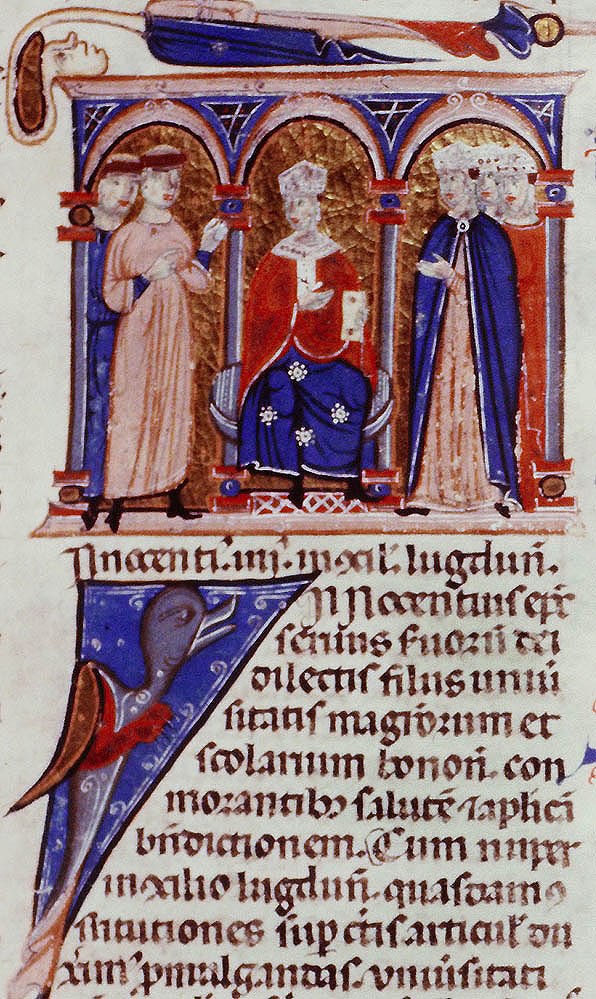 Innocenti. iiij. in ↄcil. lugduñ.
INNocentius epc
seruus seruorū dei
dilectis filiis uniū
sitatis magrorum et
scolarium bonoñ. con
morantibȝ salutē ⁊ aplicā
bñdictionem. Cum nuper
in ↄcilio lugduñ. quasdam ↄ
stitutiones suꝑ c̄tis articuľ du
xim⁹ ꝓmulgandas. uniūsitati